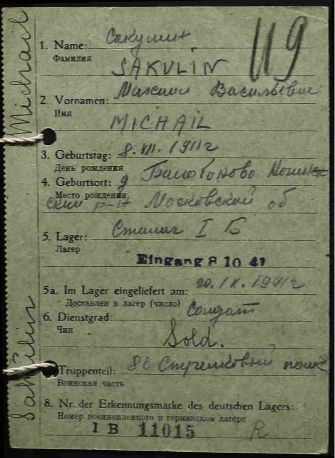 Michail
Sakulin
119
1. Name: Сакулин
Фамилия
SAKULIN
2. Vornamen: Михаил Васильевич
Имя
MICHAIL
3. Geburtstag: 8. VII. 1911г
День рождения
4. Geburtsort: д
Место рождения
р-н Московской об
5. Lager: Сталаг I Б
Лагер
Eingang 8 10 41
5a. Im Lager eingeliefert am: 20. IX. 1941г
Доставлен в лагер (число)
6. Dienstgrad: Солдат
Чин
Sold.
Truppenteil: 86 Стрелковый полк
Воинская часть
8. Nr. der Erkennungsmarke des deutschen Lagers:
Номер военнопленного в германском лагере
I B 11015
R